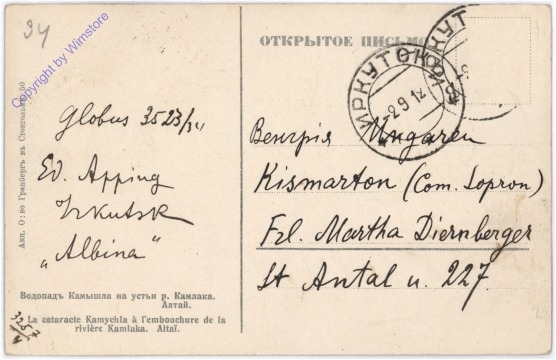 34
Copyright by Wimstore
ОТКРЫТОЕ ПИСЬМО
ИРКУТСКЪ
2 9 12
Globus 3523/34
Ed. Apping
Irkutsk
„Albina“
Венгрія Ungaren
Kismarton (Com. Sopron)
Frl. Martha Diernberger
St Antal u. 227.
Акц. О:во Гранбергъ въ Стокгольмѣ
Водопадъ Камышла на устьи р. Камлака.
Алтай.
La cataracte Kamychla à l'embouchure de la
rivière Kamlaka. Altaï.
3257